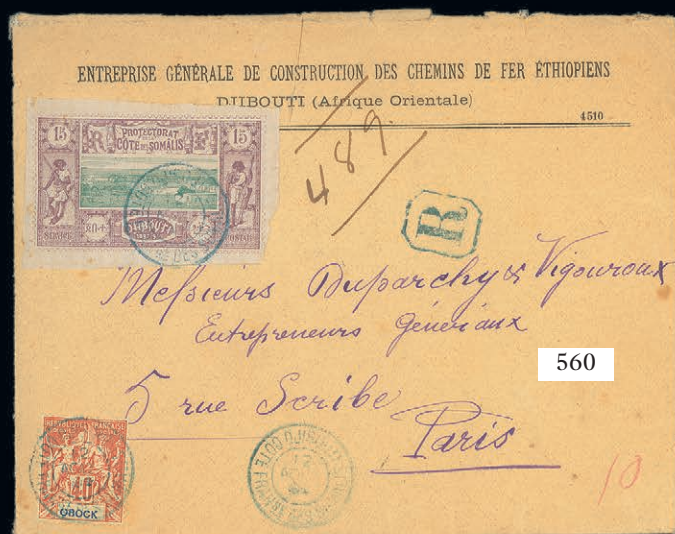 ENTREPRISE GÉNÉRALE DE CONSTRUCTION DES CHEMINS DE FER ÉTHIOPIENS
DJIBOUTI (Afrique Orientale)
4510
15 15
PROTECTORAT
CÔTE DES SOMALIS
DJIBOUTI
POSTES
489.
R
Messieurs Duparchy & Vigouroux
Entrepreneurs Généraux
560
5 rue Scribe
Paris
OBOCK
10